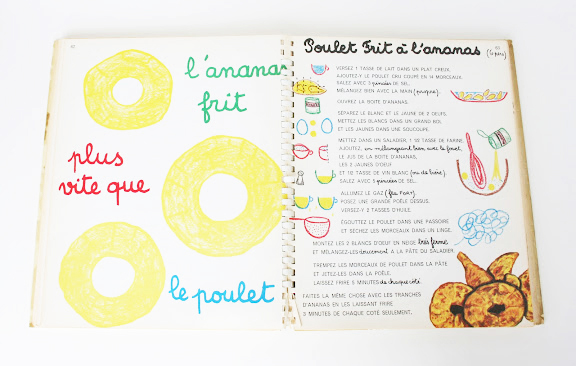 l'ananas
frit
plus
vite que
le poulet
Poulet Frit à l'ananas
VERSEZ 1 TASSE DE LAIT DANS UN PLAT CREUX.
AJOUTEZ-Y LE POULET CRU COUPÉ EN 14 MORCEAUX.
SALEZ AVEC 5 pincées DE SEL.
MÉLANGEZ BIEN AVEC LA MAIN (propre).
OUVREZ LA BOITE D'ANANAS.
SÉPAREZ LE BLANC ET LE JAUNE DE 2 ŒUFS.
METTEZ LES BLANCS DANS UN GRAND BOL
ET LES JAUNES DANS UNE SOUCOUPE.
METTEZ DANS UN SALADIER, 1 1/2 TASSE DE FARINE.
AJOUTEZ, en mélangeant bien avec le fouet,
LE JUS DE LA BOITE D'ANANAS,
LES 2 JAUNES D'ŒUF
ET 1/2 TASSE DE VIN BLANC
SALEZ AVEC 5 pincées DE SEL.
ALLUMEZ LE GAZ (feu FORT).
POSEZ UNE GRANDE POÊLE DESSUS.
VERSEZ-Y 2 TASSES D'HUILE.
ÉGOUTTEZ LE POULET DANS UNE PASSOIRE
ET SÉCHEZ LES MORCEAUX DANS UN LINGE.
MONTEZ LES 2 BLANCS D'ŒUF EN NEIGE très ferme
ET MÉLANGEZ-LES doucement A LA PÂTE DU SALADIER.
TREMPEZ LES MORCEAUX DE POULET DANS LA PÂTE
ET JETEZ-LES DANS LA POÊLE.
LAISSEZ FRIRE 5 MINUTES de chaque côté.
FAITES LA MÊME CHOSE AVEC LES TRANCHES
D'ANANAS EN LES LAISSANT FRIRE
3 MINUTES DE CHAQUE COTÉ SEULEMENT.